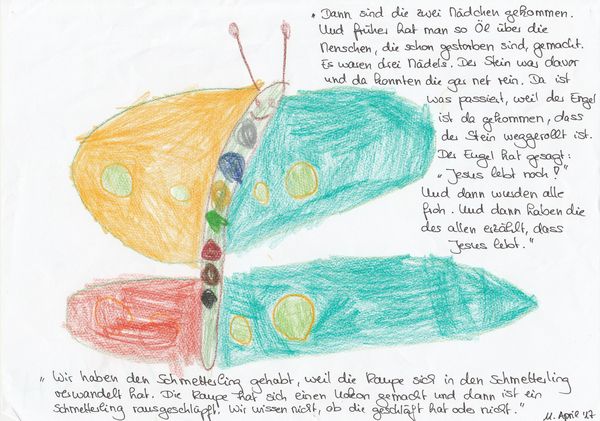 "Dann sind die zwei Mädchen gekommen.
Und früher hat man so Öl über die
Menschen, die schon gestorben sind, gemacht.
Es waren drei Mädels. Der Stein war davor
und da konnten die gar net rein. Da ist
was passiert, weil der Engel
ist da gekommen, dass
der Stein weggerollt ist.
Der Engel hat gesagt:
„Jesus lebt noch!"
Und dann wurden alle
froh. Und dann haben die
des allen erzählt, dass
Jesus lebt."
"Wir haben den Schmetterling gehabt, weil die Raupe sich in den Schmetterling
verwandelt hat. Die Raupe hat sich einen Kokon gemacht und dann ist ein
Schmetterling rausgeschlüpft. Wir wissen nicht, ob die geschläft hat oder nicht."
11. April '17